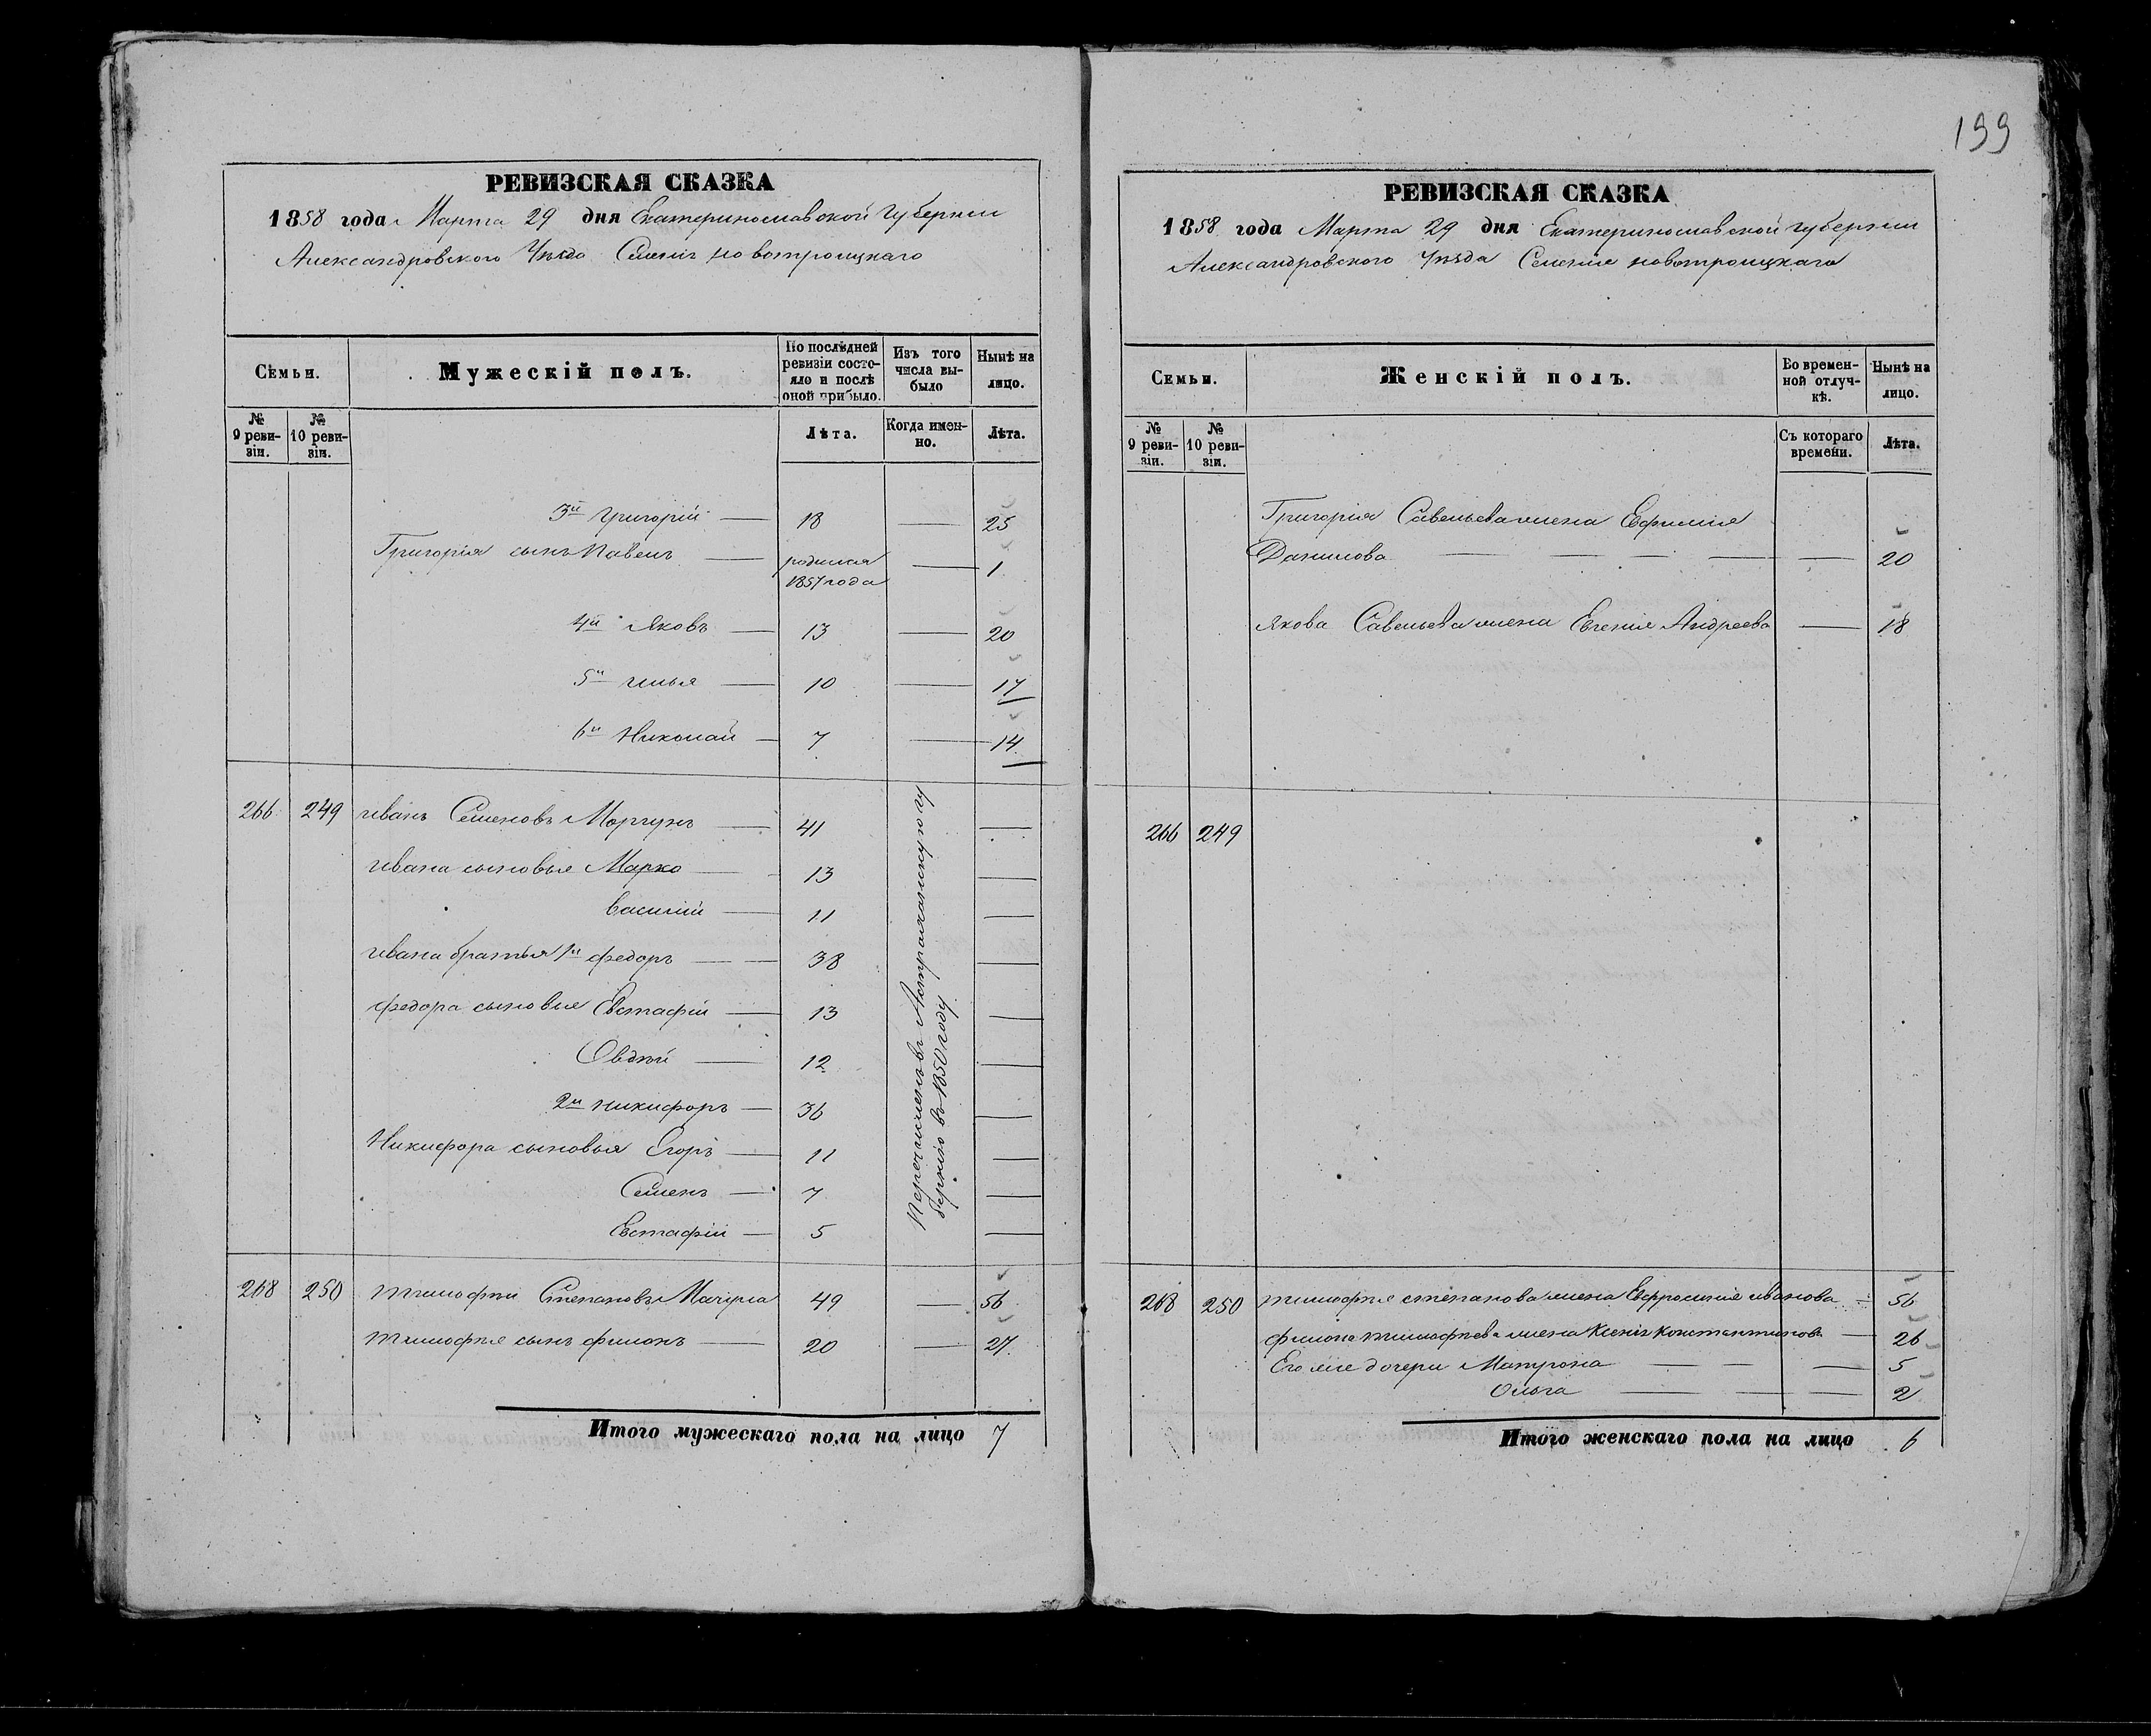 199
РЕВИЗСКАЯ СКАЗКА
1858 года Марта 29 дня Екатеринославской Губернии
Александровского Уѣзда Селенія новотроицкаго
Семьи.
Мужескій полъ.
По послѣдней ревизіи состояло и послѣ оной прибыло.
Изъ того числа выбыло
Нынѣ на лицо.
№ 9 ревизіи.
№ 10 ревизіи.
Лѣта.
Когда именно.
Лѣта.
3й Григорій — 18 — 25
Григорія сынъ Павелъ — родился 1857 года — 1
4й Яковъ — 13 — 20
5й Илья — 10 — 17
6й Николай — 7 — 14
266 249 Иванъ Семеновъ Моргунъ — 41 —
Ивана сыновья Марко — 13 —
Василій — 11 —
Ивана братья 1й Федоръ — 38 —
Федора сыновья Евстафій — 13 —
Овдѣй — 12 —
2й Никифоръ — 36 —
Никифора сыновья Егоръ — 11 —
Семенъ — 7 —
Евстафій — 5 —
Перечисленъ въ Астраханскую гу
бернію въ 1850 году
268 250 Тимофѣй Степановъ — 49 — 56
Тимофѣя сынъ Филонъ — 20 — 27
Итого мужескаго пола на лицо 7
РЕВИЗСКАЯ СКАЗКА
1858 года Марта 29 дня Екатеринославской Губернии
Александровского Уѣзда Селенія новотроицкаго
Семьи.
Женскій полъ.
Во временной отлучкѣ.
Нынѣ на лицо.
№ 9 ревизіи.
№ 10 ревизіи.
Съ котораго времени.
Лѣта.
Григорія Савельева жена Ефимія
Данилова — — 20
Якова Савельева жена Евгенія Андреева — 18
266 249
268 250 Тимофѣя степанова жена Евфросинія иванова — 56
Филона тимофѣева жена Ксенія Константинова — 26
Его же дочери Матрона — — 5
Ольга — — 2
Итого женскаго пола на лицо 6